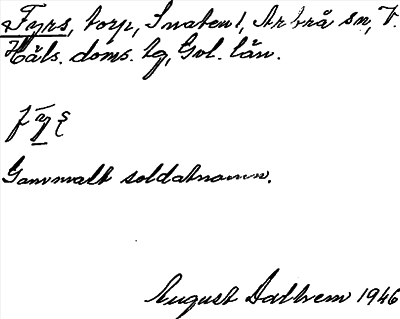 Fyrs, torp, Snaten!, Arbrå sn, V.
Häls. doms. lg, Gvl. län.
fȳʂ
Gammalt soldatnamn.
August Dalhem 1946